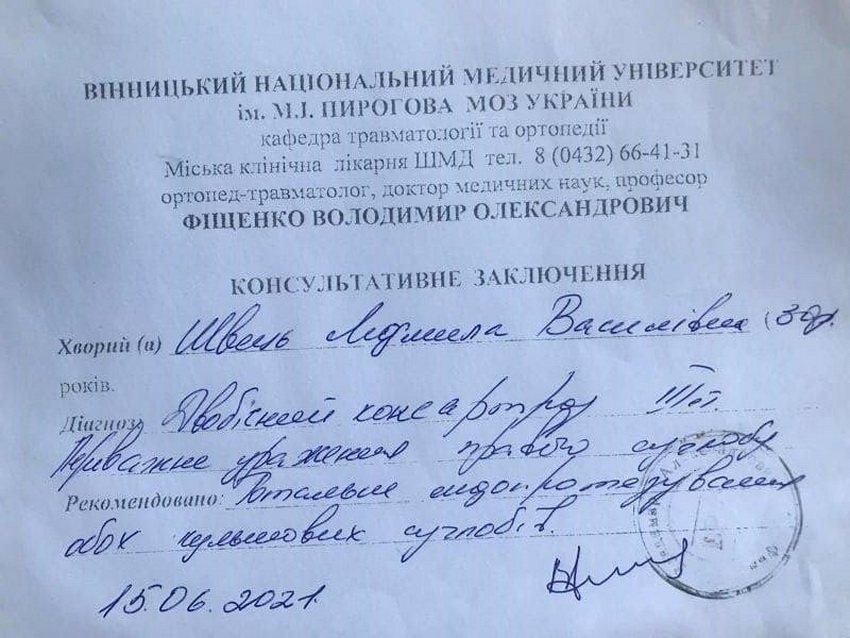 ВІННИЦЬКИЙ НАЦІОНАЛЬНИЙ МЕДИЧНИЙ УНІВЕРСИТЕТ
ім. М.І. ПИРОГОВА МОЗ УКРАЇНИ
кафедра травматології та ортопедії
Міська клінічна лікарня ШМД тел. 8 (0432) 66-41-31
ортопед-травматолог, доктор медичних наук, професор
ФІЩЕНКО ВОЛОДИМИР ОЛЕКСАНДРОВИЧ
КОНСУЛЬТАТИВНЕ ЗАКЛЮЧЕННЯ
Хворий (а) Швець Людмила Василівна
років.
Діагноз: Двобічний коксартроз III ст.
Переважне ураження правого суглобу
Рекомендовано: Тотальне ендопротезування
обох кульшових суглобів.
15.06.2021